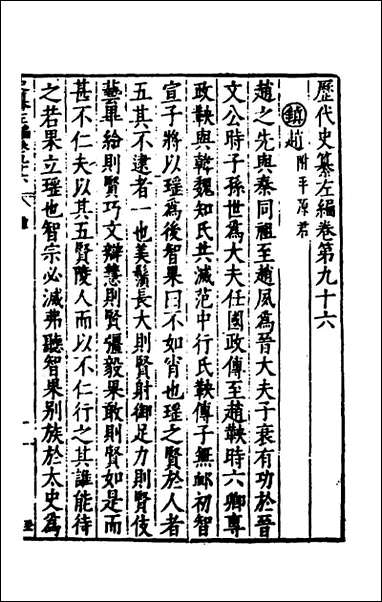 歷代史纂左編卷第九十六
鎮 趙 附平原君
趙之先與秦同祖至趙夙為晉大夫子衰有功於晉
文公時子孫世為大夫任國政傳至趙鞅時六卿專
政鞅與韓魏知氏共滅范中行氏鞅傳子無邺初智
宣子將以瑶為後智果曰不如宵也瑶之賢於人者
五其不逮者一也美鬚長大則賢射御足力則賢伎
藝畢給則賢巧文辯慧則賢彊毅果敢則賢如是而
甚不仁夫以其五賢陵人而以不仁行之其誰能待
之若果立瑶也智宗必滅弗聽智果别族於太史為